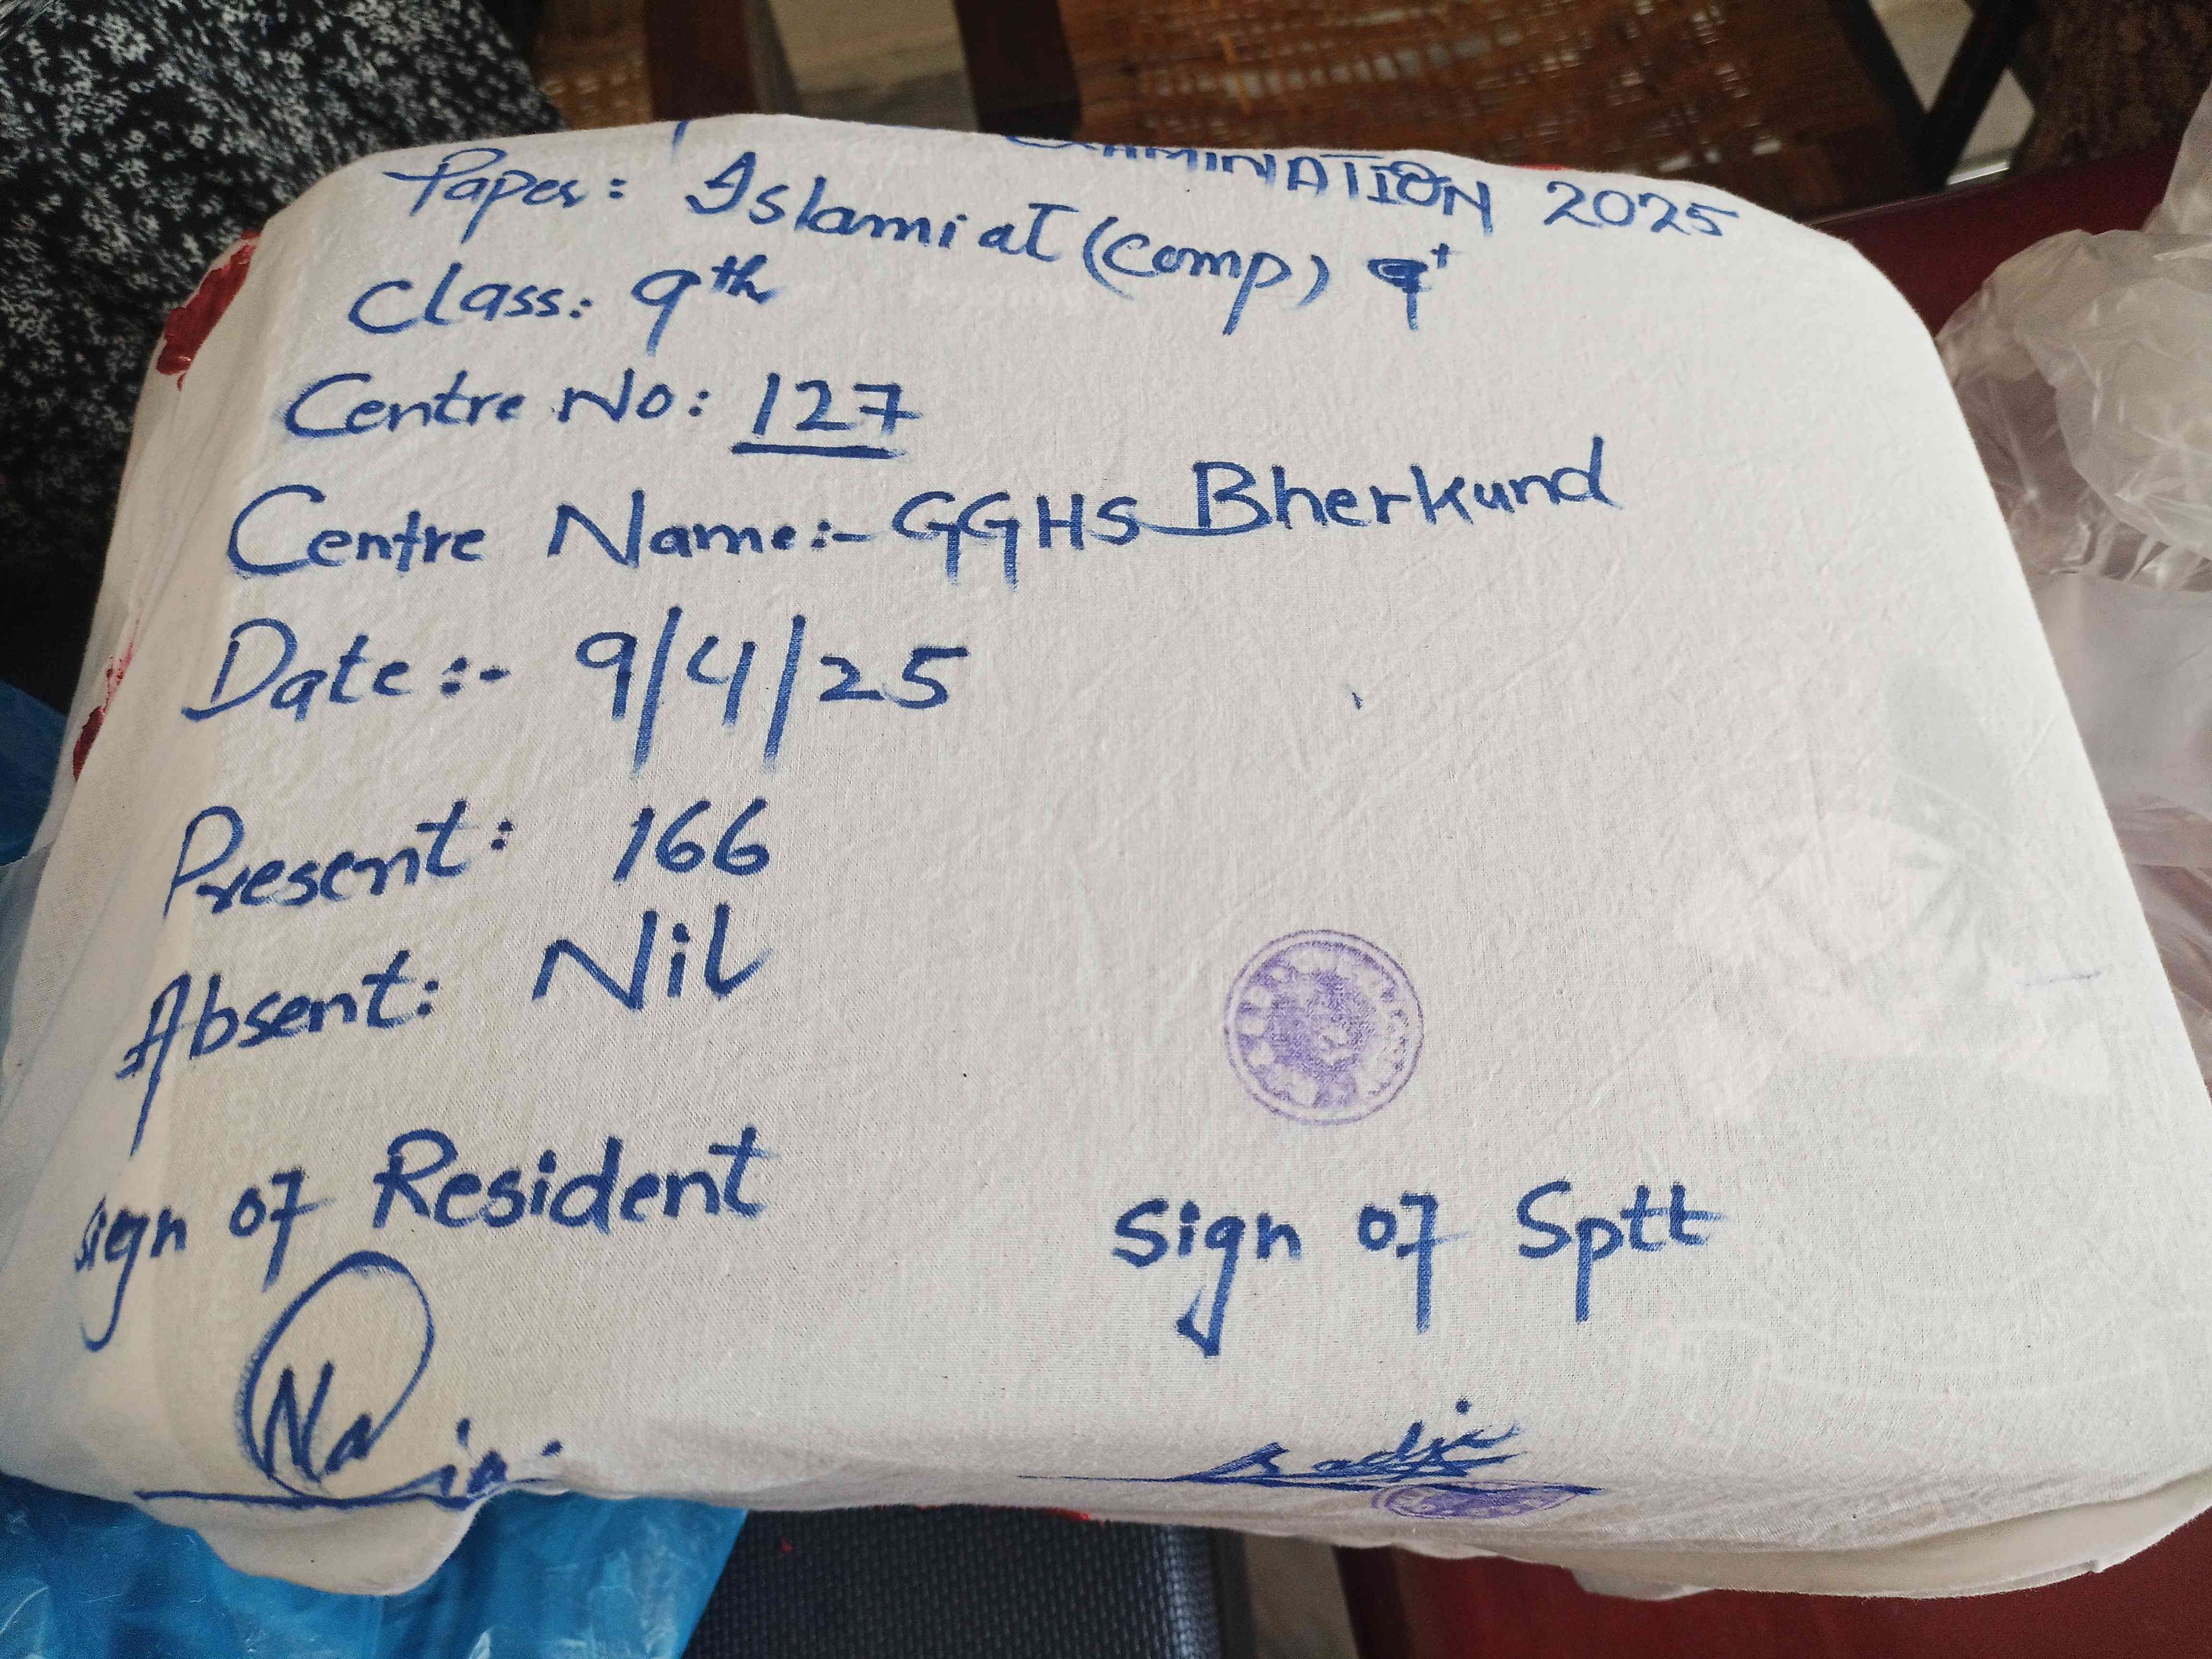 EXAMINATION 2025
Paper: Islamiat (Comp) 9t
Class: 9th
Centre No: 127
Centre Name:- GGHS Bherkund
Date:- 9/4/25
Present: 166
Absent: Nil
Sign of Resident
Sign of Sptt